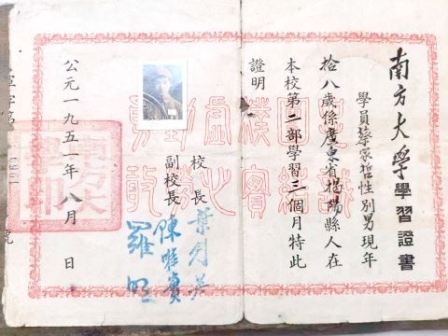 南方大學學習證書
學員蔡家哲性別男現年
拾八歲係廣東省揭陽縣人在
本校第二部學習三個月特此
證明
校長葉劍英
副校長陳唯實
羅明
公元一九五一年八月 日
字第 號